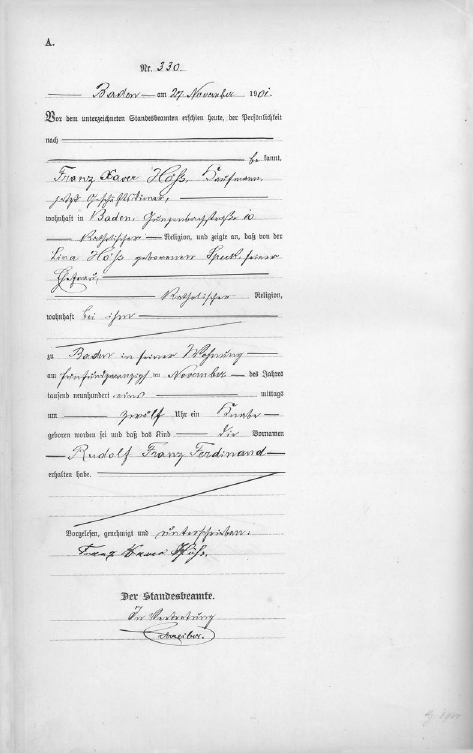 A.
Nr. 330.
Baden am 27. November 1901.
Vor dem unterzeichneten Standesbeamten erschien heute, der Persönlichkeit
nach
be kannt,
Franz Xaver Höß, Kaufmann,
wohnhaft in Baden,
Katholischer Religion, und zeigte an, daß von der
Lina Höß geborenen Speck, seiner
Ehefrau,
Katholischer Religion,
wohnhaft bei ihm
zu Baden in seiner Wohnung
am fünfundzwanzigsten November des Jahres
tausend neunhundert eins mittags
um zwölf Uhr ein Knabe
geboren worden sei und daß das Kind die Vornamen
Rudolf Franz Ferdinand
erhalten habe.
Vorgelesen, genehmigt und unterschrieben.
Franz Xaver Höß.
Der Standesbeamte.
In Vertretung